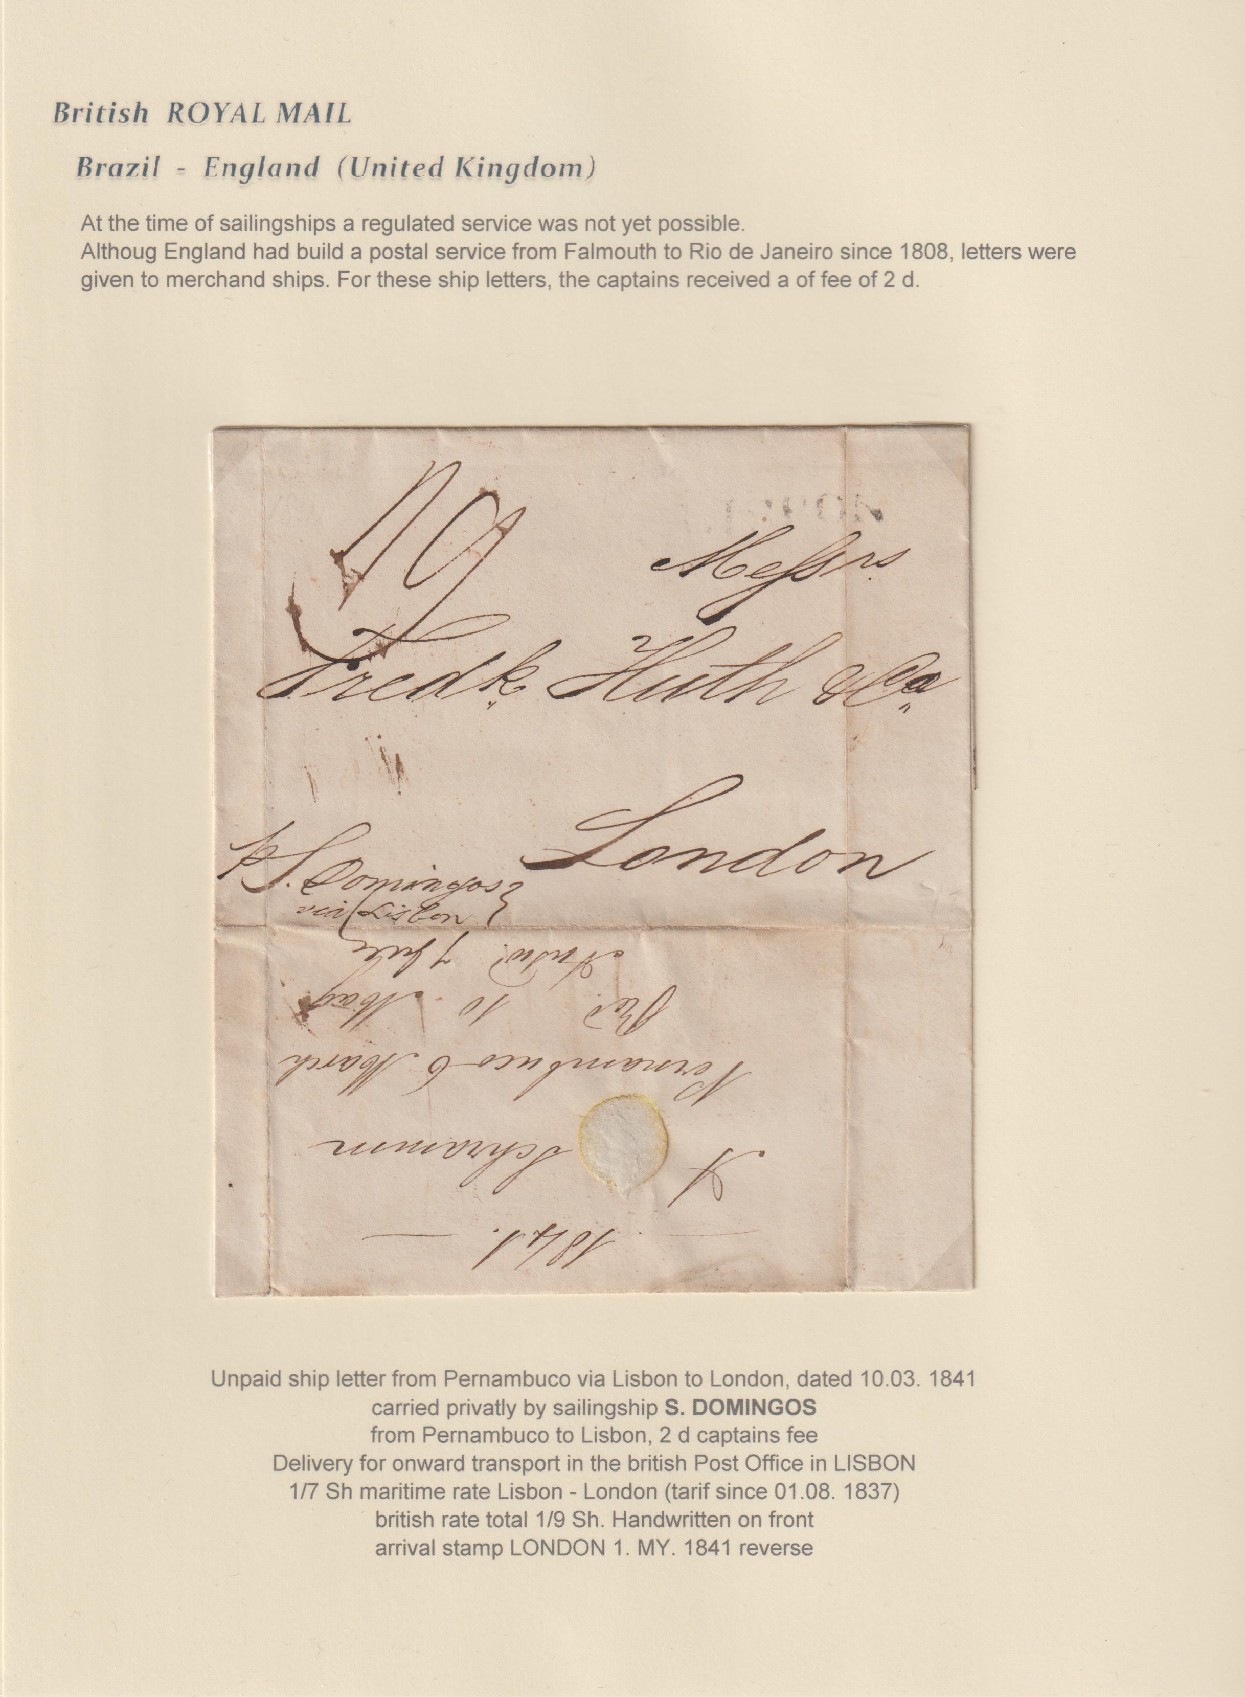 British ROYAL MAIL
Brazil - England (United Kingdom)
At the time of sailingships a regulated service was not yet possible.
Althoug England had build a postal service from Falmouth to Rio de Janeiro since 1808, letters were
given to merchand ships. For these ship letters, the captains received a of fee of 2 d.
1/9
Messrs
Fredk. Huth & Co.
London
S. Domingos
via Lisbon
1841.
A Schramm
Pernambuco 6 March
Recd. 10 May
Answd.
Unpaid ship letter from Pernambuco via Lisbon to London, dated 10.03. 1841
carried privatly by sailingship S. DOMINGOS
from Pernambuco to Lisbon, 2 d captains fee
Delivery for onward transport in the british Post Office in LISBON
1/7 Sh maritime rate Lisbon - London (tarif since 01.08. 1837)
british rate total 1/9 Sh. Handwritten on front
arrival stamp LONDON 1. MY. 1841 reverse